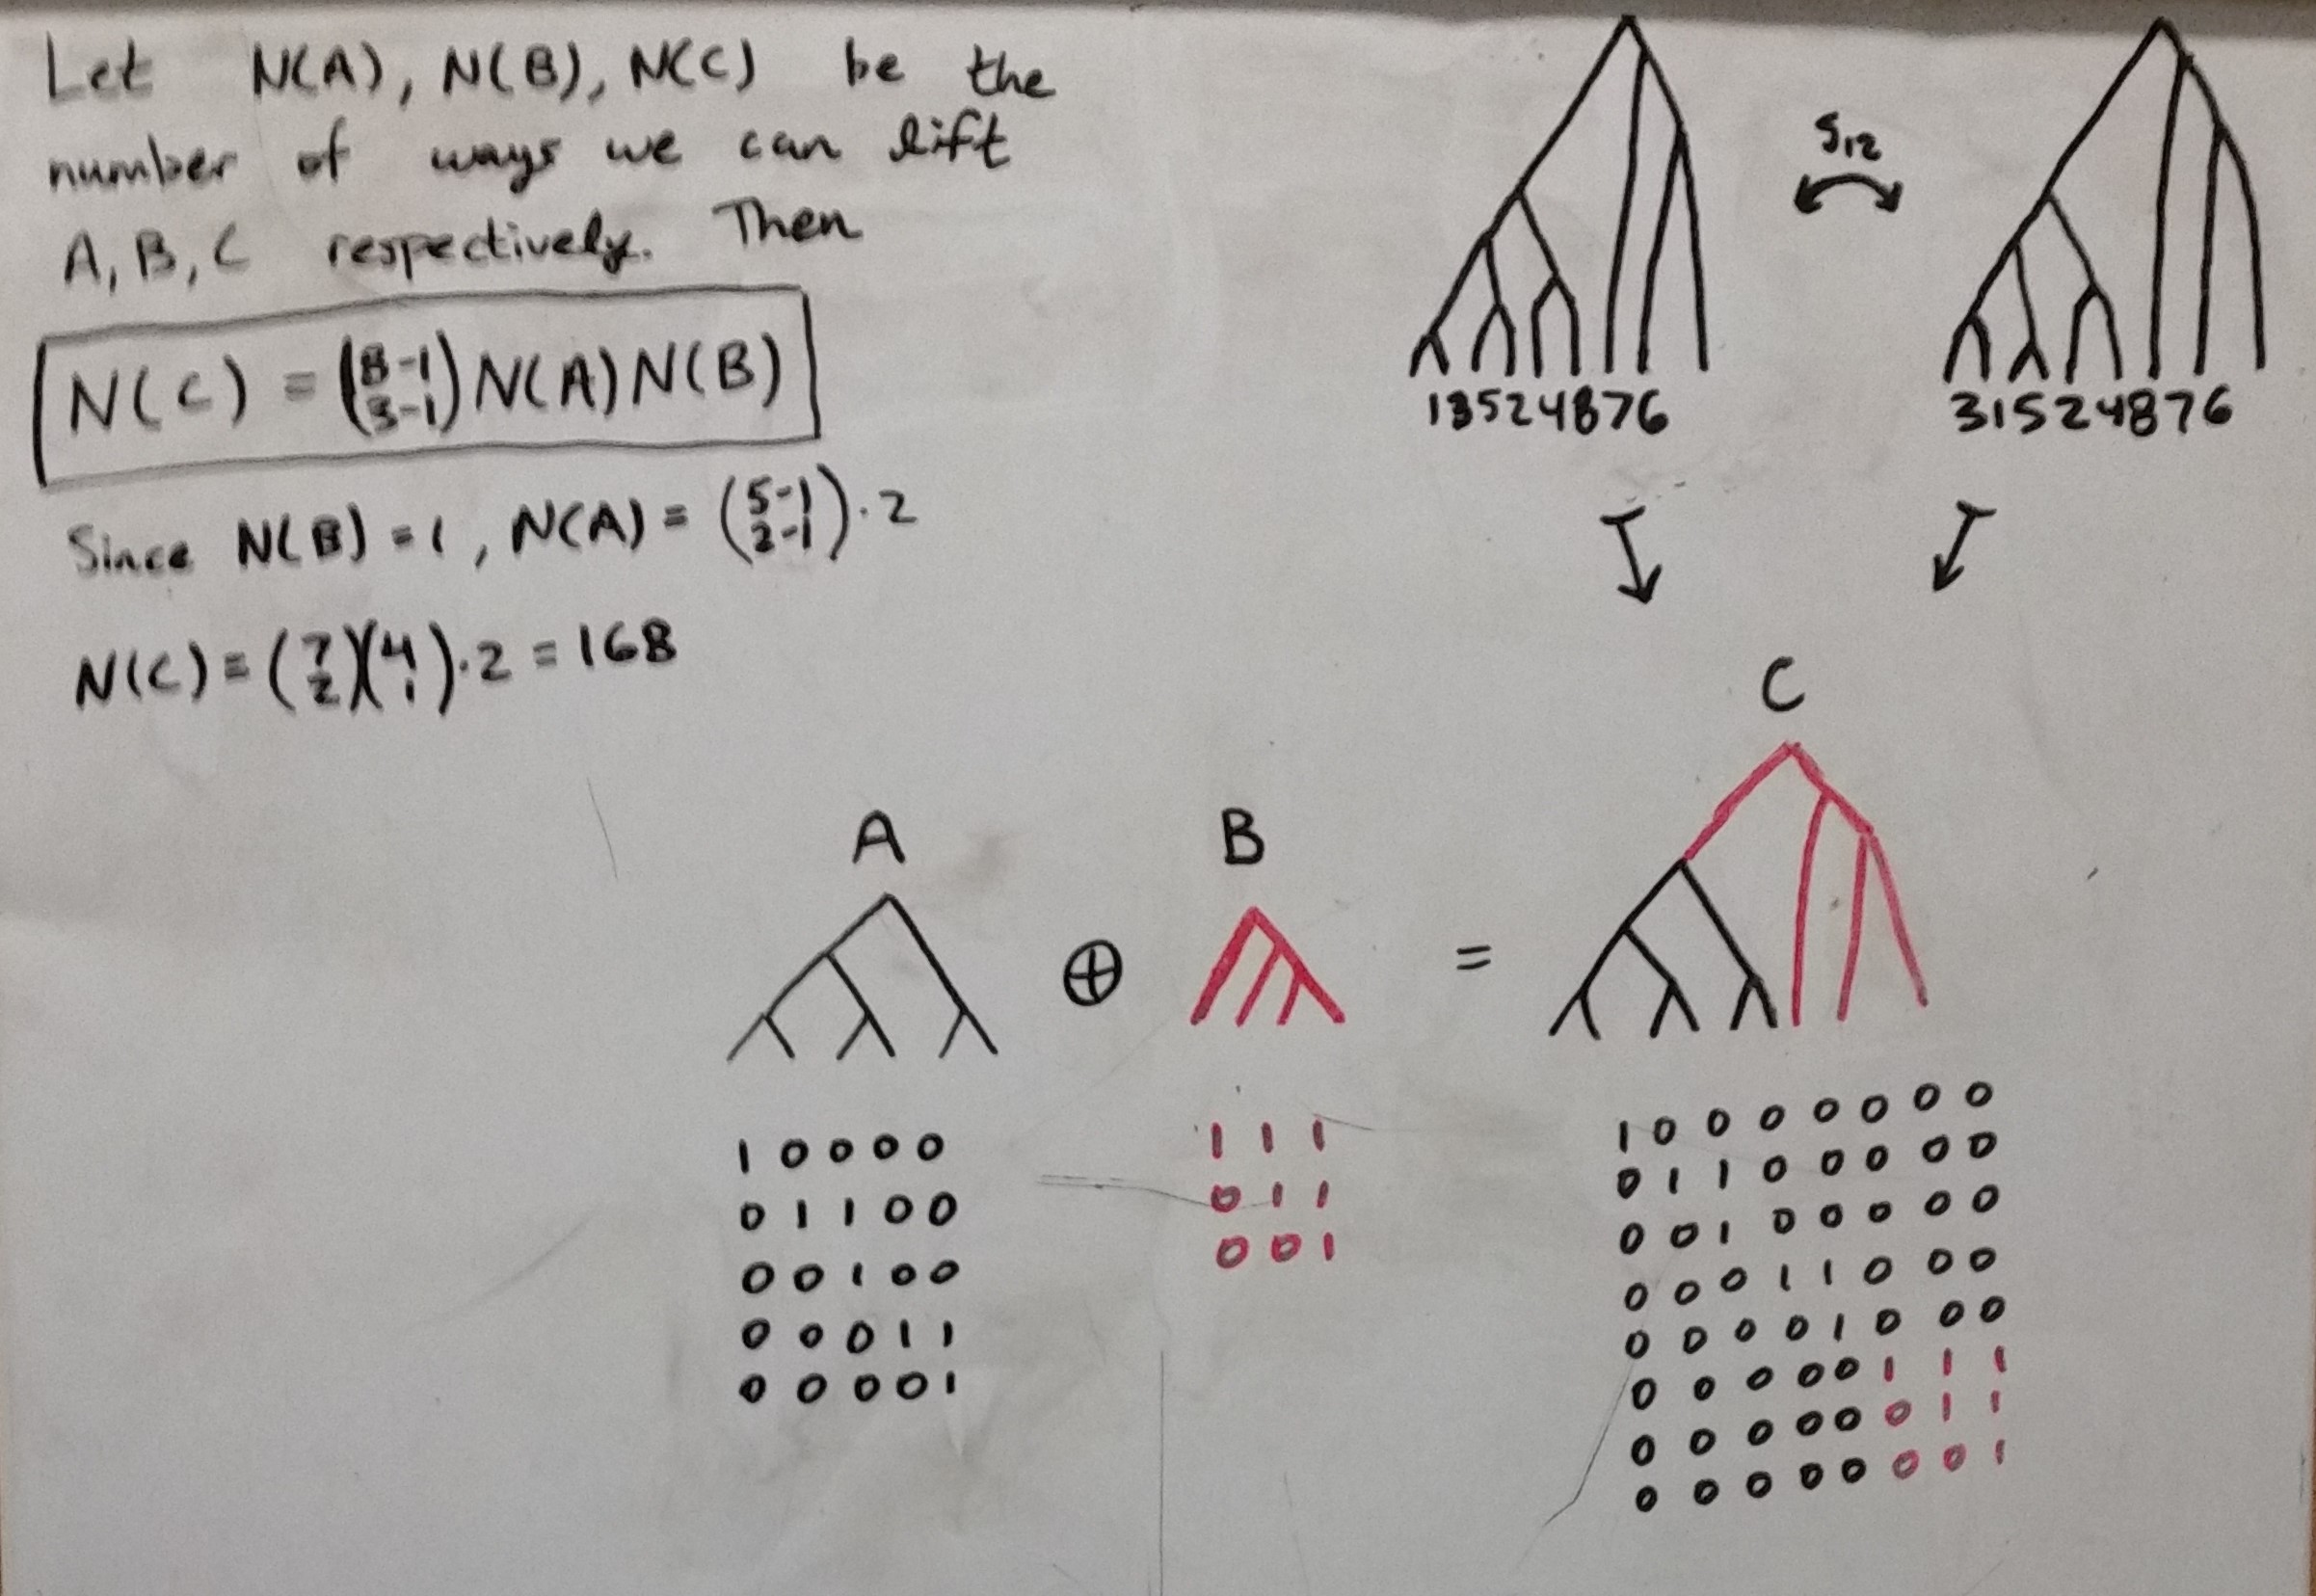 Let N(A), N(B), N(C) be the
number of ways we can lift
A, B, C respectively. Then
N(C) = (8-1 3-1) N(A) N(B)
Since N(B) = 1, N(A) = (5-1 2-1) · 2
N(C) = (7 2)(4 1) · 2 = 168
S12
13524876
31524876
C
A
B
⊕
=
1 0 0 0 0
0 1 1 0 0
0 0 1 0 0
0 0 0 1 1
0 0 0 0 1
1 1 1
0 1 1
0 0 1
1 0 0 0 0 0 0 0
0 1 1 0 0 0 0 0
0 0 1 0 0 0 0 0
0 0 0 1 1 0 0 0
0 0 0 0 1 0 0 0
0 0 0 0 0 1 1 1
0 0 0 0 0 0 1 1
0 0 0 0 0 0 0 1